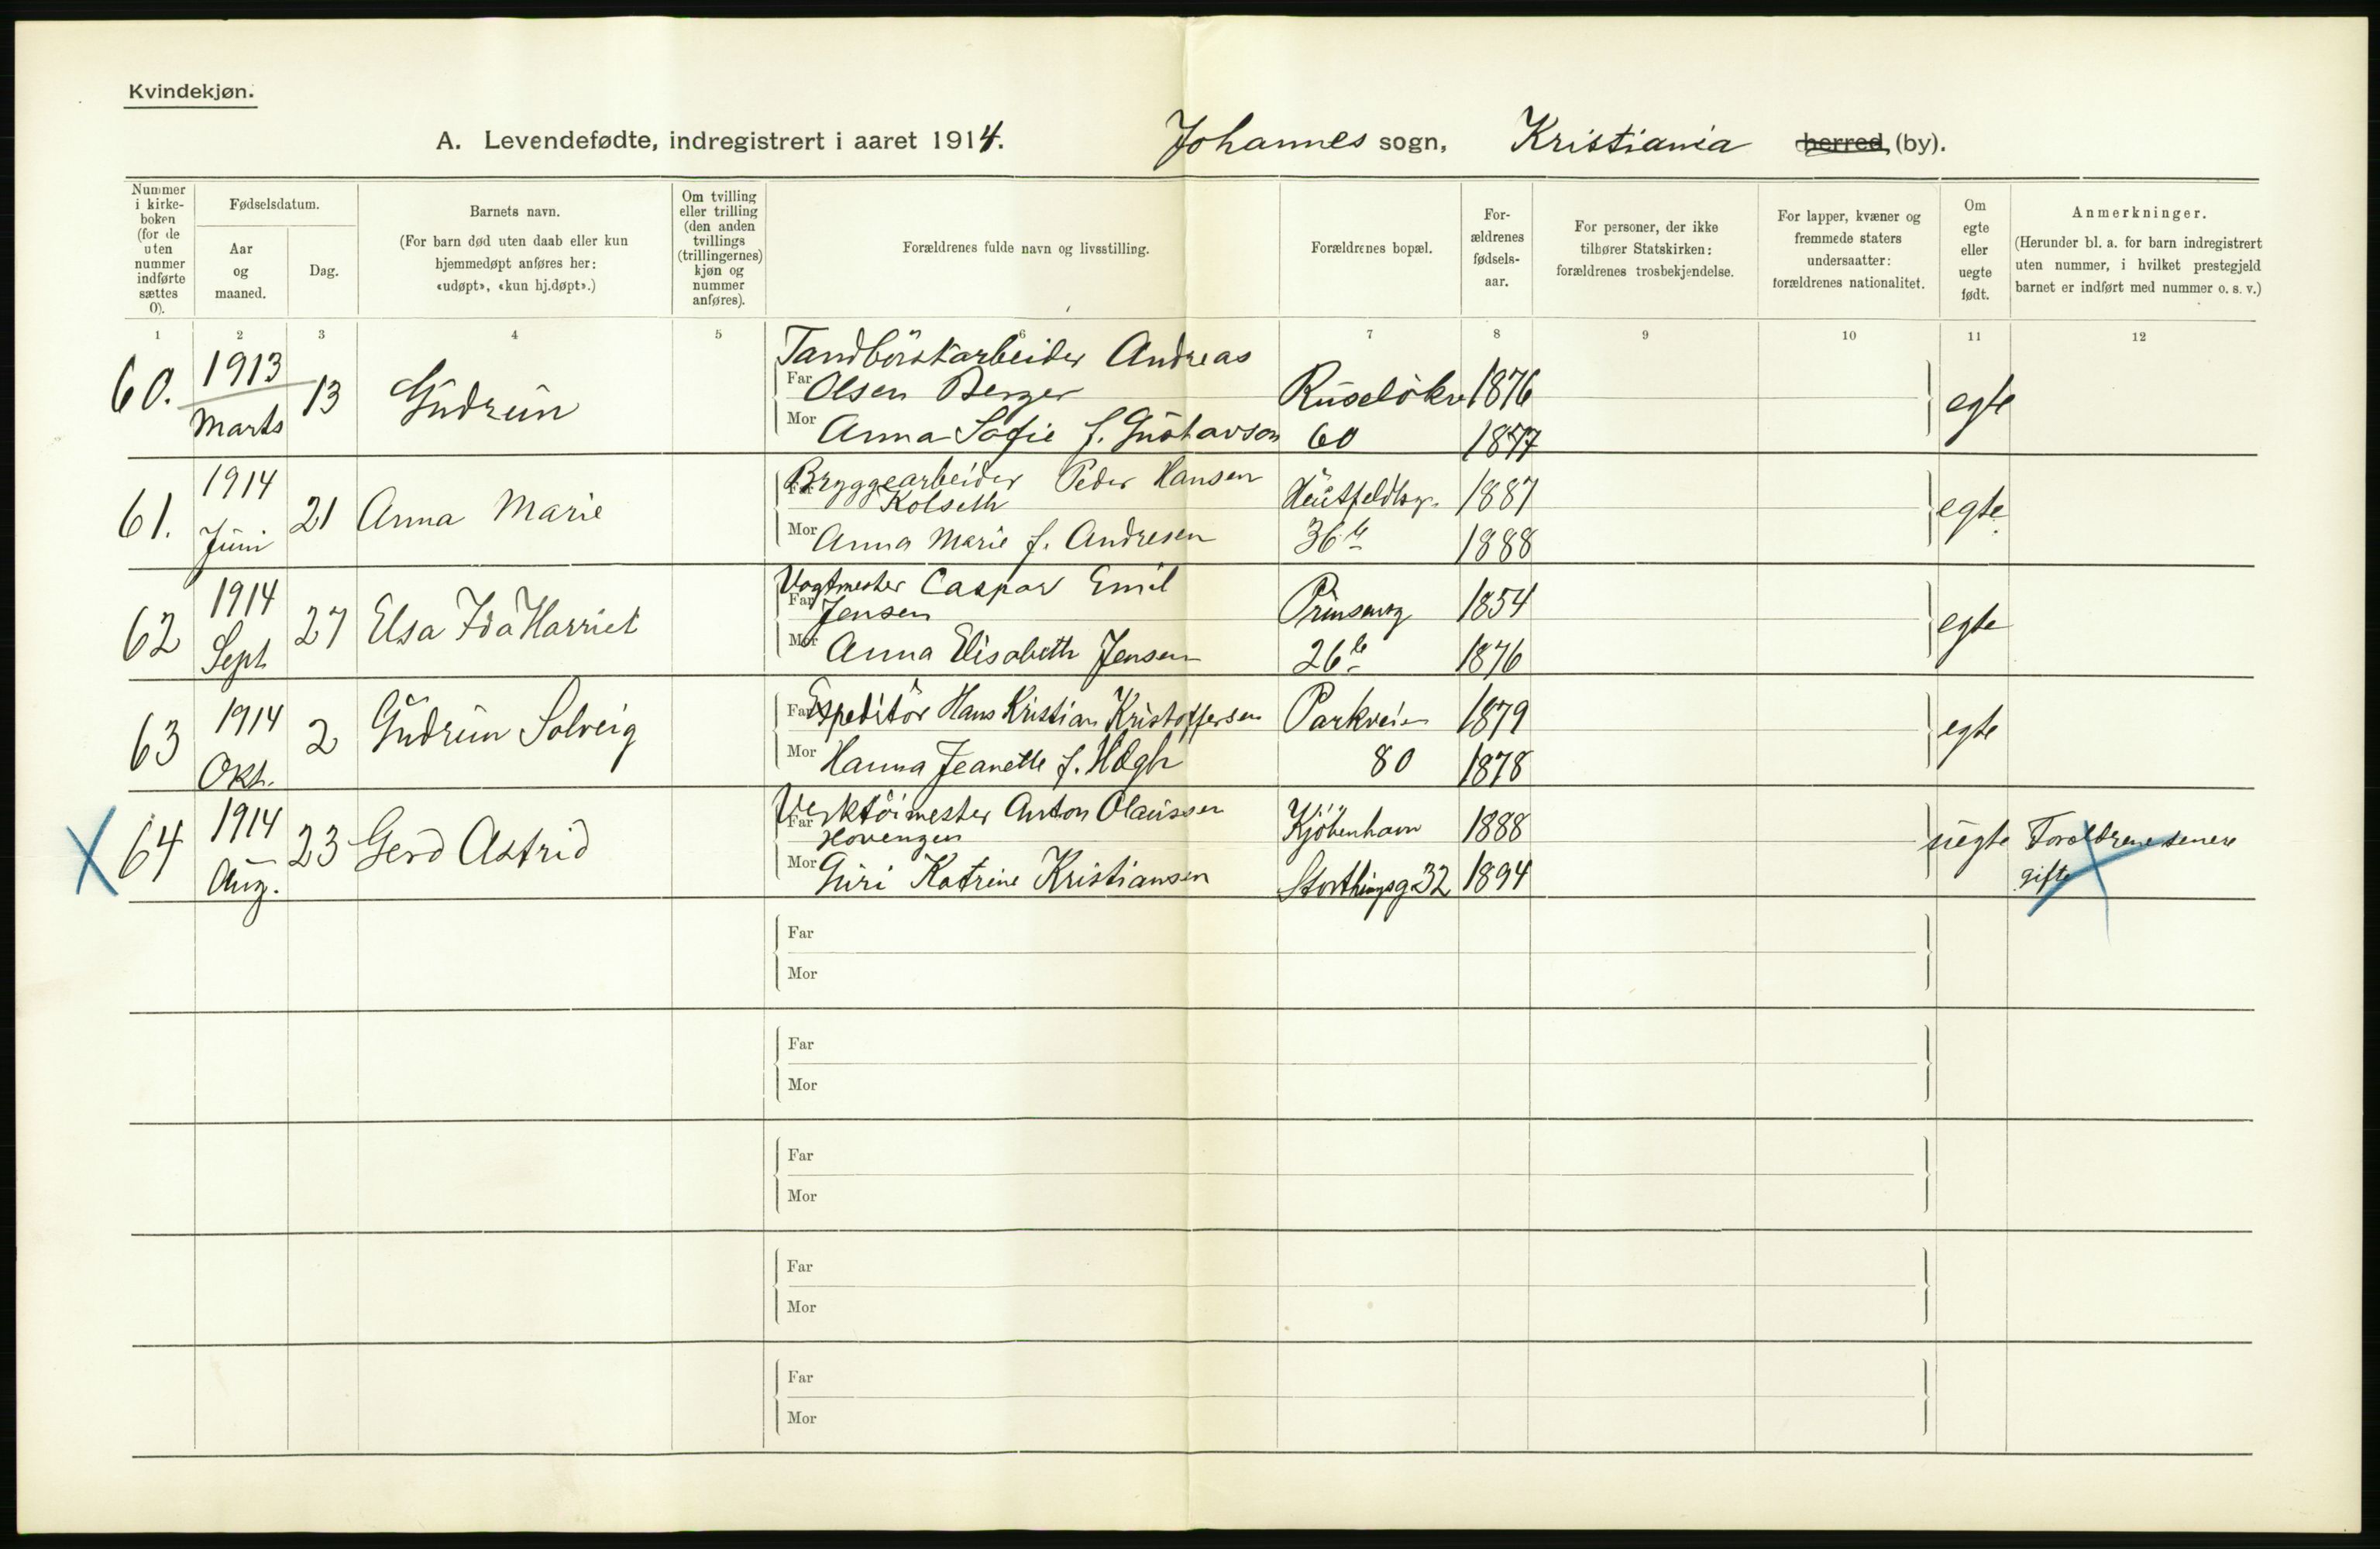 Kvindekjøn.
A. Levendefødte, indregistrert i aaret 1914. Johannes sogn, Kristiania herred, (by).
Nummer i kirke-boken (for de uten nummer indførte sættes 0).
Fødselsdatum.
Aar og maaned.
Dag.
Barnets navn.
(For barn død uten daab eller kun hjemmedøpt anføres her: «udøpt», «kun hj.døpt».)
Om tvilling eller trilling (den anden tvillings (trillingernes) kjøn og nummer anføres).
Forældrenes fulde navn og livsstilling.
Forældrenes bopæl.
For-ældrenes fødsels-aar.
For personer, der ikke tilhører Statskirken: forældrenes trosbekjendelse.
For lapper, kvæner og fremmede staters undersaatter: forældrenes nationalitet.
Om egte eller uegte født.
Anmerkninger.
(Herunder bl. a. for barn indregistrert uten nummer, i hvilket prestegjeld barnet er indført med nummer o. s. v.)
1 2 3 4 5 6 7 8 9 10 11 12
60. 1913 Marts 13 Gudrun
Tandbörstarbeider Andreas
Far Olsen Berger Ruselökv 1876 egte
Mor Anna Sofie f. Gustavson 60 1877
61. 1914 Juni 21 Anna Marie
Far Bryggearbeider Peder Hansen
Kolseth Huitfeldtsg. 1887 egte
Mor Anna Marie f. Andresen 36 b 1888
62 1914 Sept 27 Elsa Ida Harriet
Vogtmester Caspar Emil
Far Jensen Prinsensg 1854 egte
Mor Anna Elisabeth Jensen 26 b 1876
63 1914 Okt. 2 Gudrun Solveig
Far Expeditör Hans Kristian Kristoffersen Parkveien 1879 egte
Mor Hanna Jeanette f. Högh 80 1878
X 64 1914 Aug. 23 Gerd Astrid
Far Verktöimester Anton Olaussen
Hovengen Kjöbenhavn 1888 uegte Forældrene senere
Mor Guri Katrine Kristiansen Storthingsg 32 1894 gifte
Far
Mor
Far
Mor
Far
Mor
Far
Mor
Far
Mor